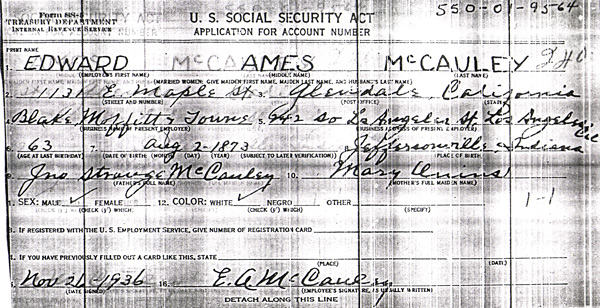 Form SS-5
TREASURY DEPARTMENT
INTERNAL REVENUE SERVICE
U. S. SOCIAL SECURITY ACT
APPLICATION FOR ACCOUNT NUMBER
550-01-9564
PRINT NAME
EDWARD AMES McCAULEY
(EMPLOYEE'S FIRST NAME) (MIDDLE NAME) (LAST NAME)
(MARRIED WOMEN: GIVE MAIDEN FIRST NAME, MAIDEN LAST NAME, AND HUSBAND'S LAST NAME)
2. 1131 E. Maple St 3. Glendale, California
(STREET AND NUMBER) (POST OFFICE) (STATE)
4. Blake Moffitt & Towne 5. 242 So Los Angeles St Los Angeles, Cal
(BUSINESS NAME OF PRESENT EMPLOYER) (BUSINESS ADDRESS OF PRESENT EMPLOYER)
6. 63 7. Aug 2-1873 8. Jeffersonville Indiana
(AGE AT LAST BIRTHDAY) (DATE OF BIRTH: (MONTH) (DAY) (YEAR) (SUBJECT TO LATER VERIFICATION) (PLACE OF BIRTH)
9. Jno Strange McCauley 10. Mary
(FATHER'S FULL NAME) (MOTHER'S FULL MAIDEN NAME)
1. SEX: MALE ✓ FEMALE 12. COLOR: WHITE ✓ NEGRO OTHER
(CHECK (√) WHICH) (CHECK (√) WHICH) (SPECIFY)
1-1
3. IF REGISTERED WITH THE U. S. EMPLOYMENT SERVICE, GIVE NUMBER OF REGISTRATION CARD
4. IF YOU HAVE PREVIOUSLY FILLED OUT A CARD LIKE THIS, STATE
(PLACE) (DATE)
Nov 21-1936 16. E. A McCauley
(DATE SIGNED) (EMPLOYEE'S SIGNATURE, AS USUALLY WRITTEN)
DETACH ALONG THIS LINE